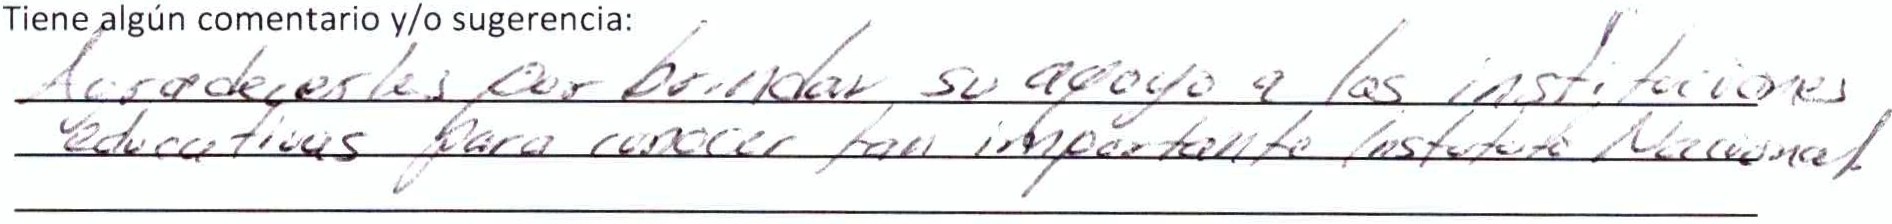 Tiene algún comentario y/o sugerencia:
Agradecerles por brindar su apoyo a las instituciones
educativas para conocer tan importante Instituto Nacional.